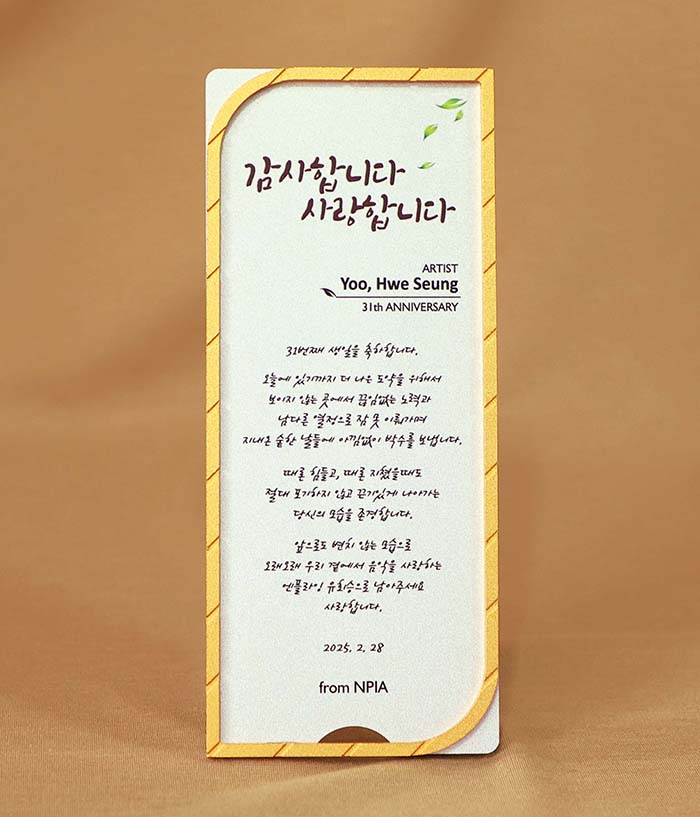 감사합니다
사랑합니다
ARTIST
Yoo, Hwe Seung
31th ANNIVERSARY
31번째 생일을 축하합니다.
오늘에 있기까지 더 나은 도약을 위해서
보이지 않는 곳에서 끊임없는 노력과
남다른 열정으로 잠 못 이뤄가며
지내온 숱한 날들에 아낌없이 박수를 보냅니다.
때론 힘들고, 때론 지쳤을때도
절대 포기하지 않고 끈기있게 나아가는
당신의 모습을 존경합니다.
앞으로도 변치 않는 모습으로
오래오래 우리 곁에서 음악을 사랑하는
엔플라잉 유회승으로 남아주세요
사랑합니다.
2025. 2. 28
from NPIA